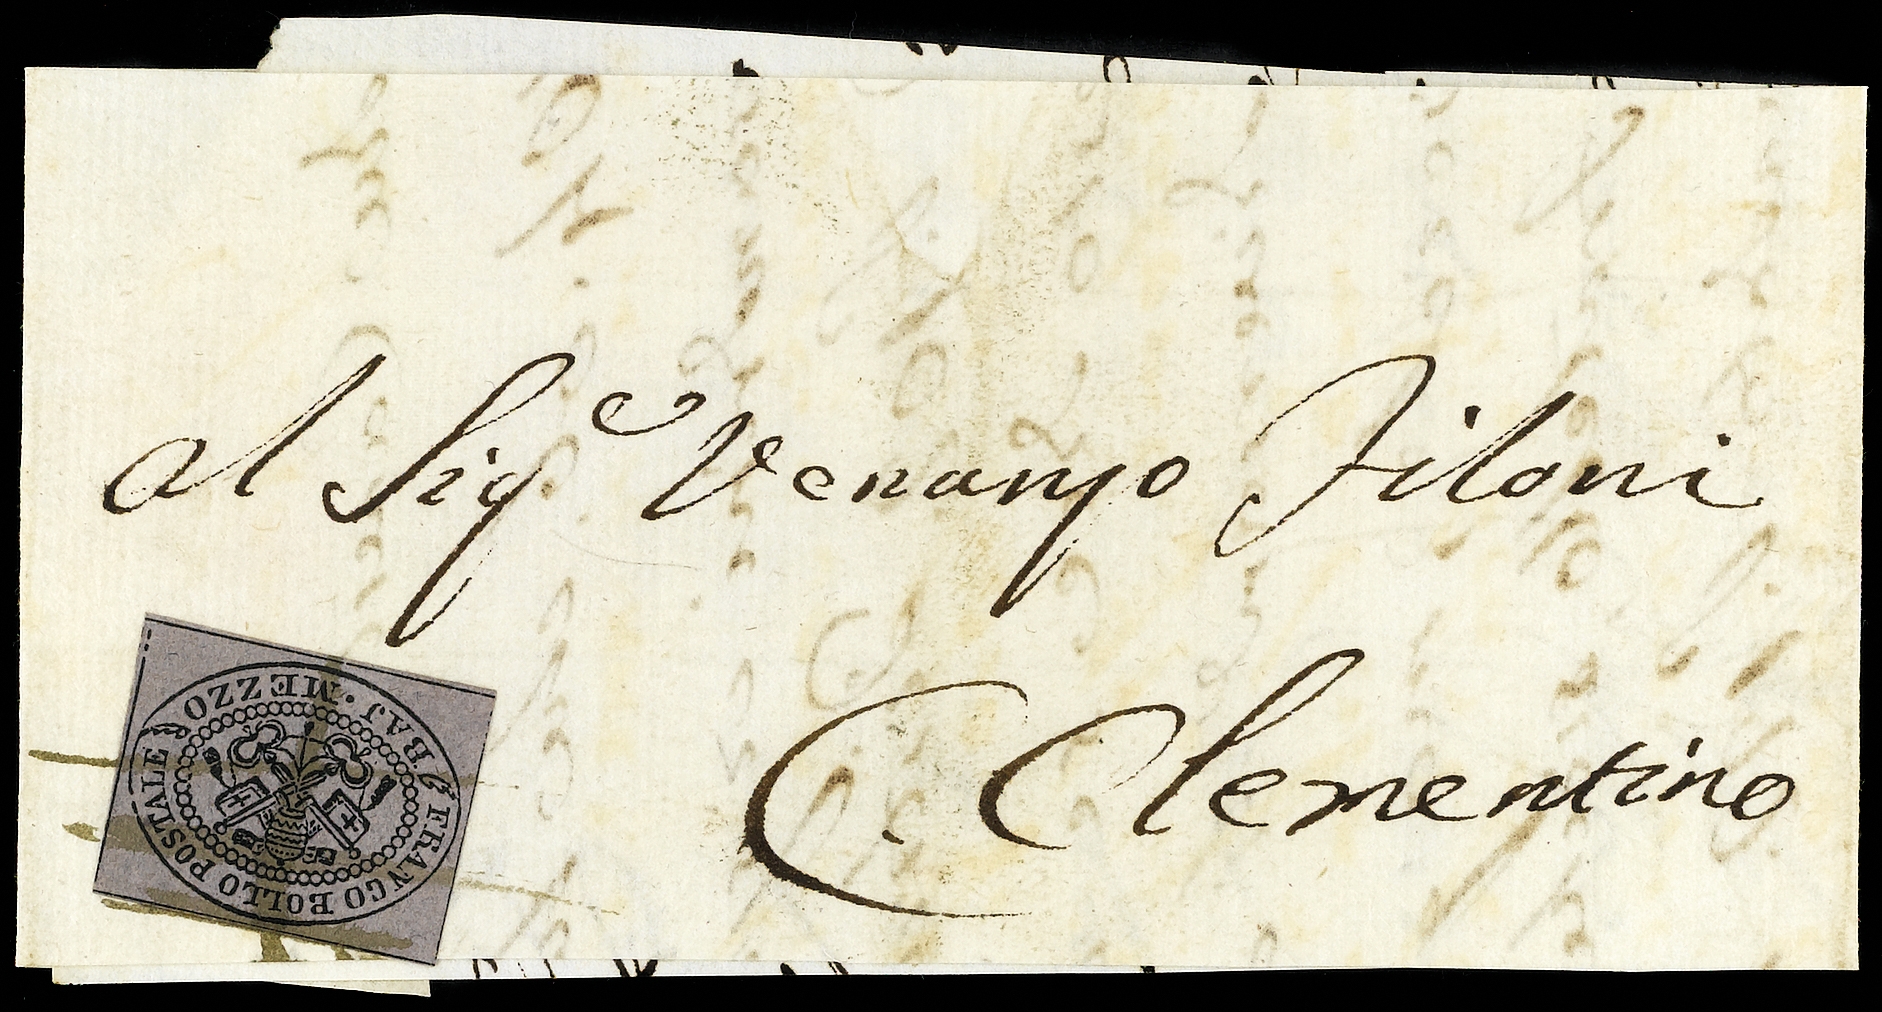 al Sigre Venanzo Filoni
C. Clementino
FRANCO BOLLO POSTALE
BAJ · MEZZO